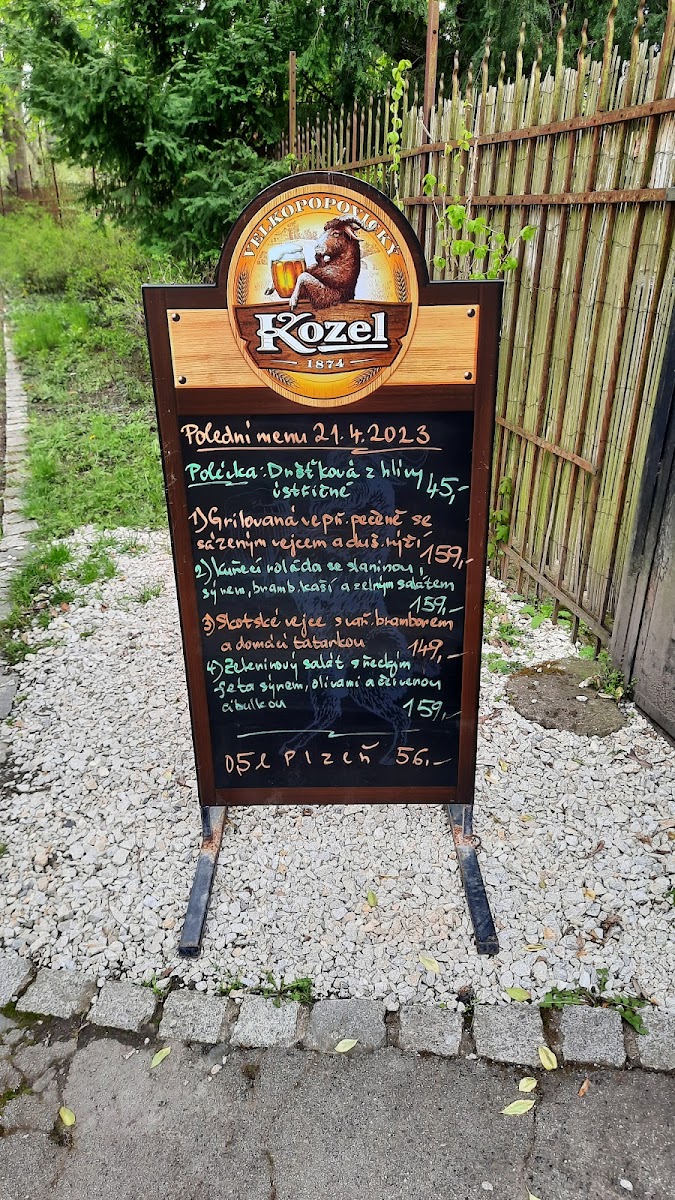 VELKOPOPOVICKÝ
Kozel
1874
Polední menu 21.4.2023
Polévka: Dršťková z hlívy 45,-
ústřičné
1) Grilovaná vepř. pečeně se
sázeným vejcem a duš. rýží 159,-
2) Kuřecí roláda se slaninou,
sýrem, bramb. kaší a zelným salátem
159,-
3) Skotské vejce s vař. bramborem
a domácí tatarkou 149,-
4) Zeleninový salát s řeckým
feta sýrem, olivami a červenou
cibulkou 159,-
0,5l Plzeň 56,-